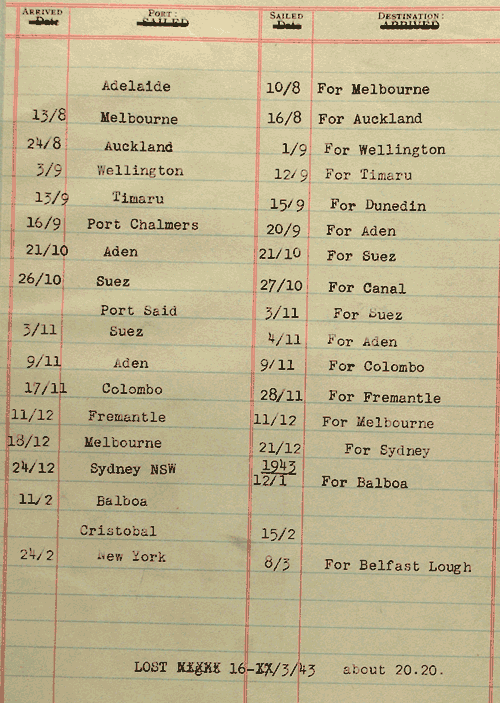 ARRIVED PORT: SAILED DESTINATION:
Date SAILED Date ARRIVED
Adelaide 10/8 For Melbourne
13/8 Melbourne 16/8 For Auckland
24/8 Auckland 1/9 For Wellington
3/9 Wellington 12/9 For Timaru
13/9 Timaru 15/9 For Dunedin
16/9 Port Chalmers 20/9 For Aden
21/10 Aden 21/10 For Suez
26/10 Suez 27/10 For Canal
Port Said 3/11 For Suez
3/11 Suez 4/11 For Aden
9/11 Aden 9/11 For Colombo
17/11 Colombo 28/11 For Fremantle
11/12 Fremantle 11/12 For Melbourne
18/12 Melbourne 21/12 For Sydney
24/12 Sydney NSW 1943
12/1 For Balboa
11/2 Balboa
Cristobal 15/2
24/2 New York 8/3 For Belfast Lough
LOST 16-/3/43 about 20.20.